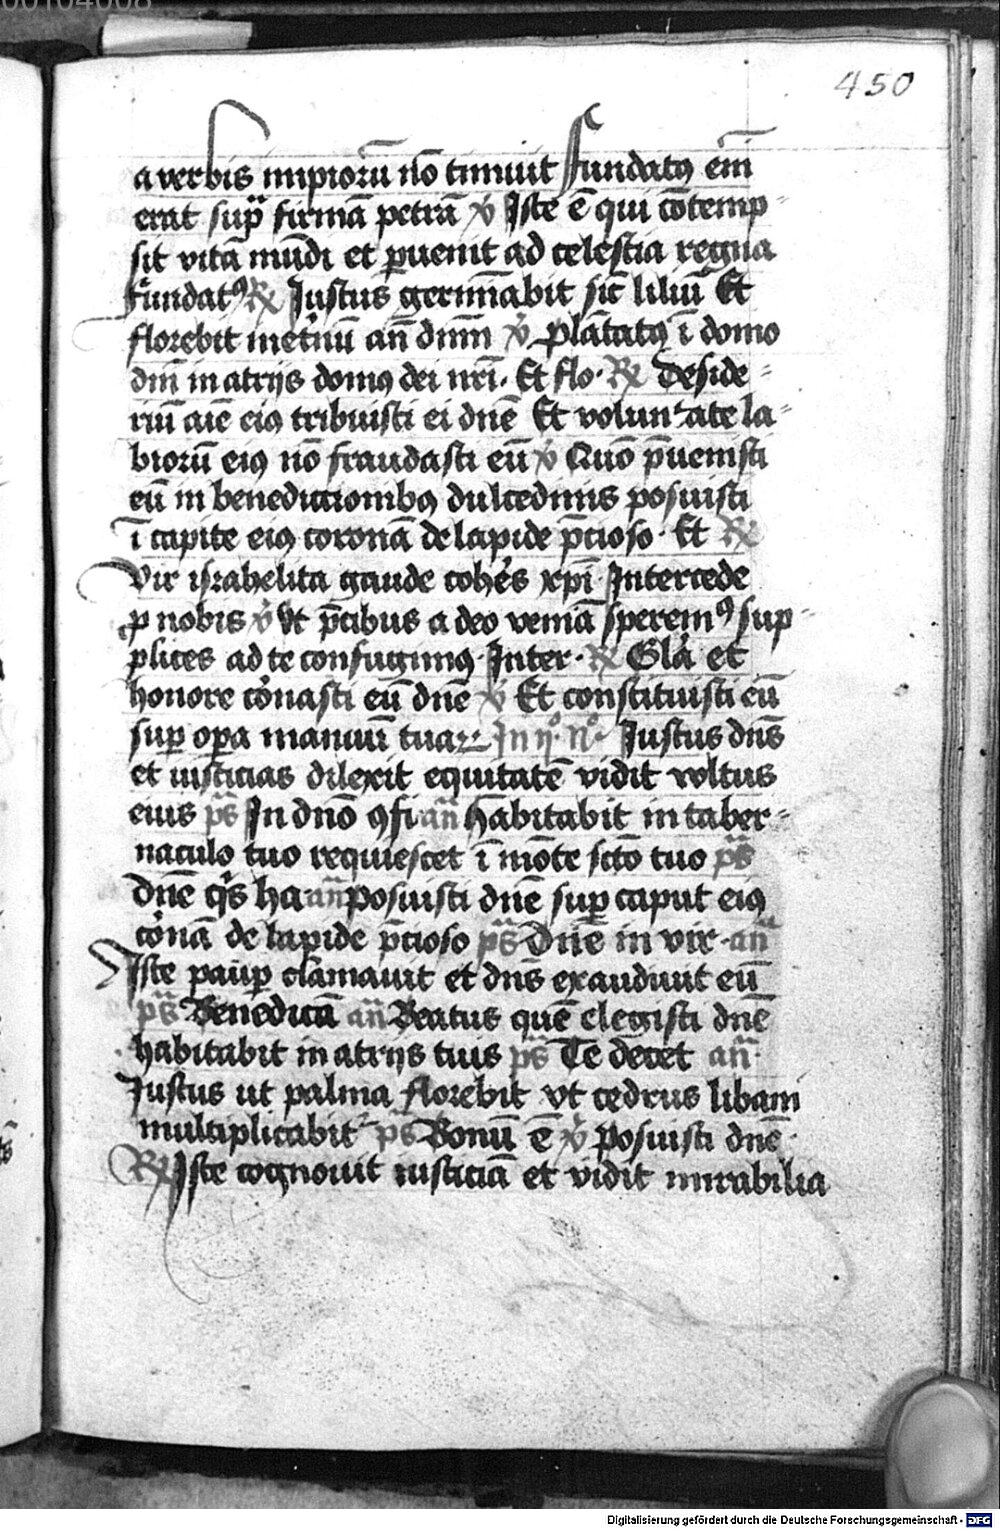 450
a verbis impiorū nō timuit Fundatꝰ em̄
erat sup̄ firmā petrā ℣ Iste ē qui cōtemp-
sit vitā mūdi et ꝑuenit ad celestia regna
Fundatꝰ ℞ Justus germīabit sic̄ liliū Et
florebit inet̄nū an̄ dnm̄ ℣ plātatꝰ ī domo
dn̄i in atrijs domꝰ dei nr̄i. Et flo. ℞ Deside-
riū aīe eiꝰ tribuisti ei dn̄e Et voluntate la-
biorū eiꝰ nō fraudasti eū ℣ Qūo p̄uenisti
eū in benedictionibꝰ dulcedinis posuisti
ī capite eiꝰ coronā de lapide p̄cioso. Et ℞
Vir israhelita gaude coh̓es xp̄i. Intercede
ꝓ nobis ℣ Vt p̄cibus a deo veniā speremꝰ sup-
plices ad te confugimꝰ. Inter. ℞ Gl̄a et
honore co̓nasti eū dn̄e ℣ Et constituisti eū
suꝑ oꝑa manuū tuaꝝ. In ij. n̊. Justus dn̄s
et iusticias dilexit equitatē vidit voltus
eius ps̄ In dn̄o ꝯfi an̄ Habitabit in taber-
naculo tuo requiescet ī mōte sc̄to tuo ps̄
Dn̄e q̓s ha. an̄ Posuisti dn̄e suꝑ caput eiꝰ
co̓nā de lapide p̄cioso ps̄ Dn̄e in vir. an̄
Iste pauꝑ clamauit et dn̄s exaudiuit eū
ps̄ Benedicā an̄ Beatus quē elegisti dn̄e
habitabit in atrijs tuis ps̄ Te decet an̄
Justus ut palma florebit vt cedrus libani
multiplicabit̓ ps̄ Bonū ē ℣ Posuisti dn̄e.
℞ Iste cognouit iusticiā et vidit mirabilia
Digitalisierung gefördert durch die Deutsche Forschungsgemeinschaft - DFG